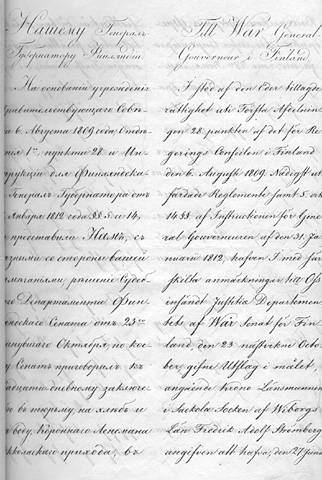 Нашему Генералъ
Губернатору Финляндiи
На основанiи учрежденiя
равительствующаго Совѣ-
та 6. Августа 1869 года, Отдѣ-
нiя 1го, пункта 28. и Ин-
рукцiи для Финляндска-
Генералъ Губернатора отъ
Января 1812 года §§ 5 и 14,
представили Намъ, съ
зными со стороны вашей
мѣчанiями, рѣшенiе Судеб-
го Департамента Фин-
ляндскаго Сената отъ 23го
минувшаго Октября, по кое-
у Сенатъ приговорилъ къ
адцати дневному заключе-
ю въ тюрьму, на хлѣбъ и
воду, Короннаго Ленсмана
ккольскаго прихода, въ
Till Wår General-
Gouverneur i Finland
I stöd af den Eder tillagda
rättighet uti Första Afdelnin-
gen 28. punkten af det för Re-
gerings Conseilen i Finland
den 6. Augusti 1869. Nådigst ut-
färdade Reglemente samt 5. och
14. §§ af Instructionen för Gene-
ral Gouverneuren af den 31. Ja-
nuarii 1812, hafven I med sär-
skilta anmärkningar till Oss
insändt Justitie Departemen-
tets af Wår Senat för Fin-
land, den 23 nästvekne Octo-
ber, gifne Utslag i målet,
angående Krono Länsmannen
i Sackola Socken af Wiborgs
Län Fredrik Adolf Strömberg
angifven att hafva, den 27 Junii